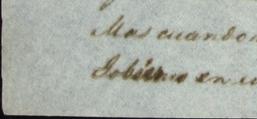 Mas cuando
Gobierno en